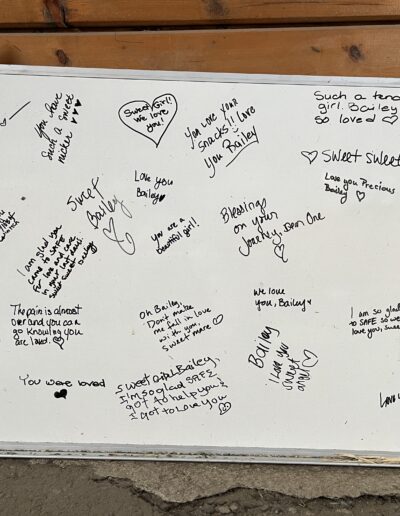 you have
such a sweet
nicker
Sweet Girl!
we love
you!
You Love your
Snacks!! Love
You Bailey
Such a
girl. Bailey
so loved
Sweet Sweet
Love you Precious
Bailey
Love you
Bailey
Sweet
Bailey
you are a
beautiful girl!
Blessings
on your
Journey, Dear One
I am glad you
came to SAFE
for love and care
in your last days.
sweet sweet Bailey
The pain is almost
over and you can
go knowing you
are loved.
Oh Bailey,
Don't make
me fall in love
with you,
sweet mare
We love
you, Bailey
I am so glad
SAFE so we
love you, sweet
Bailey
I Love you
sweet
angel
You were loved
Sweet Girl Bailey,
I'm so glad SAFE
got to help you &
I got to love you